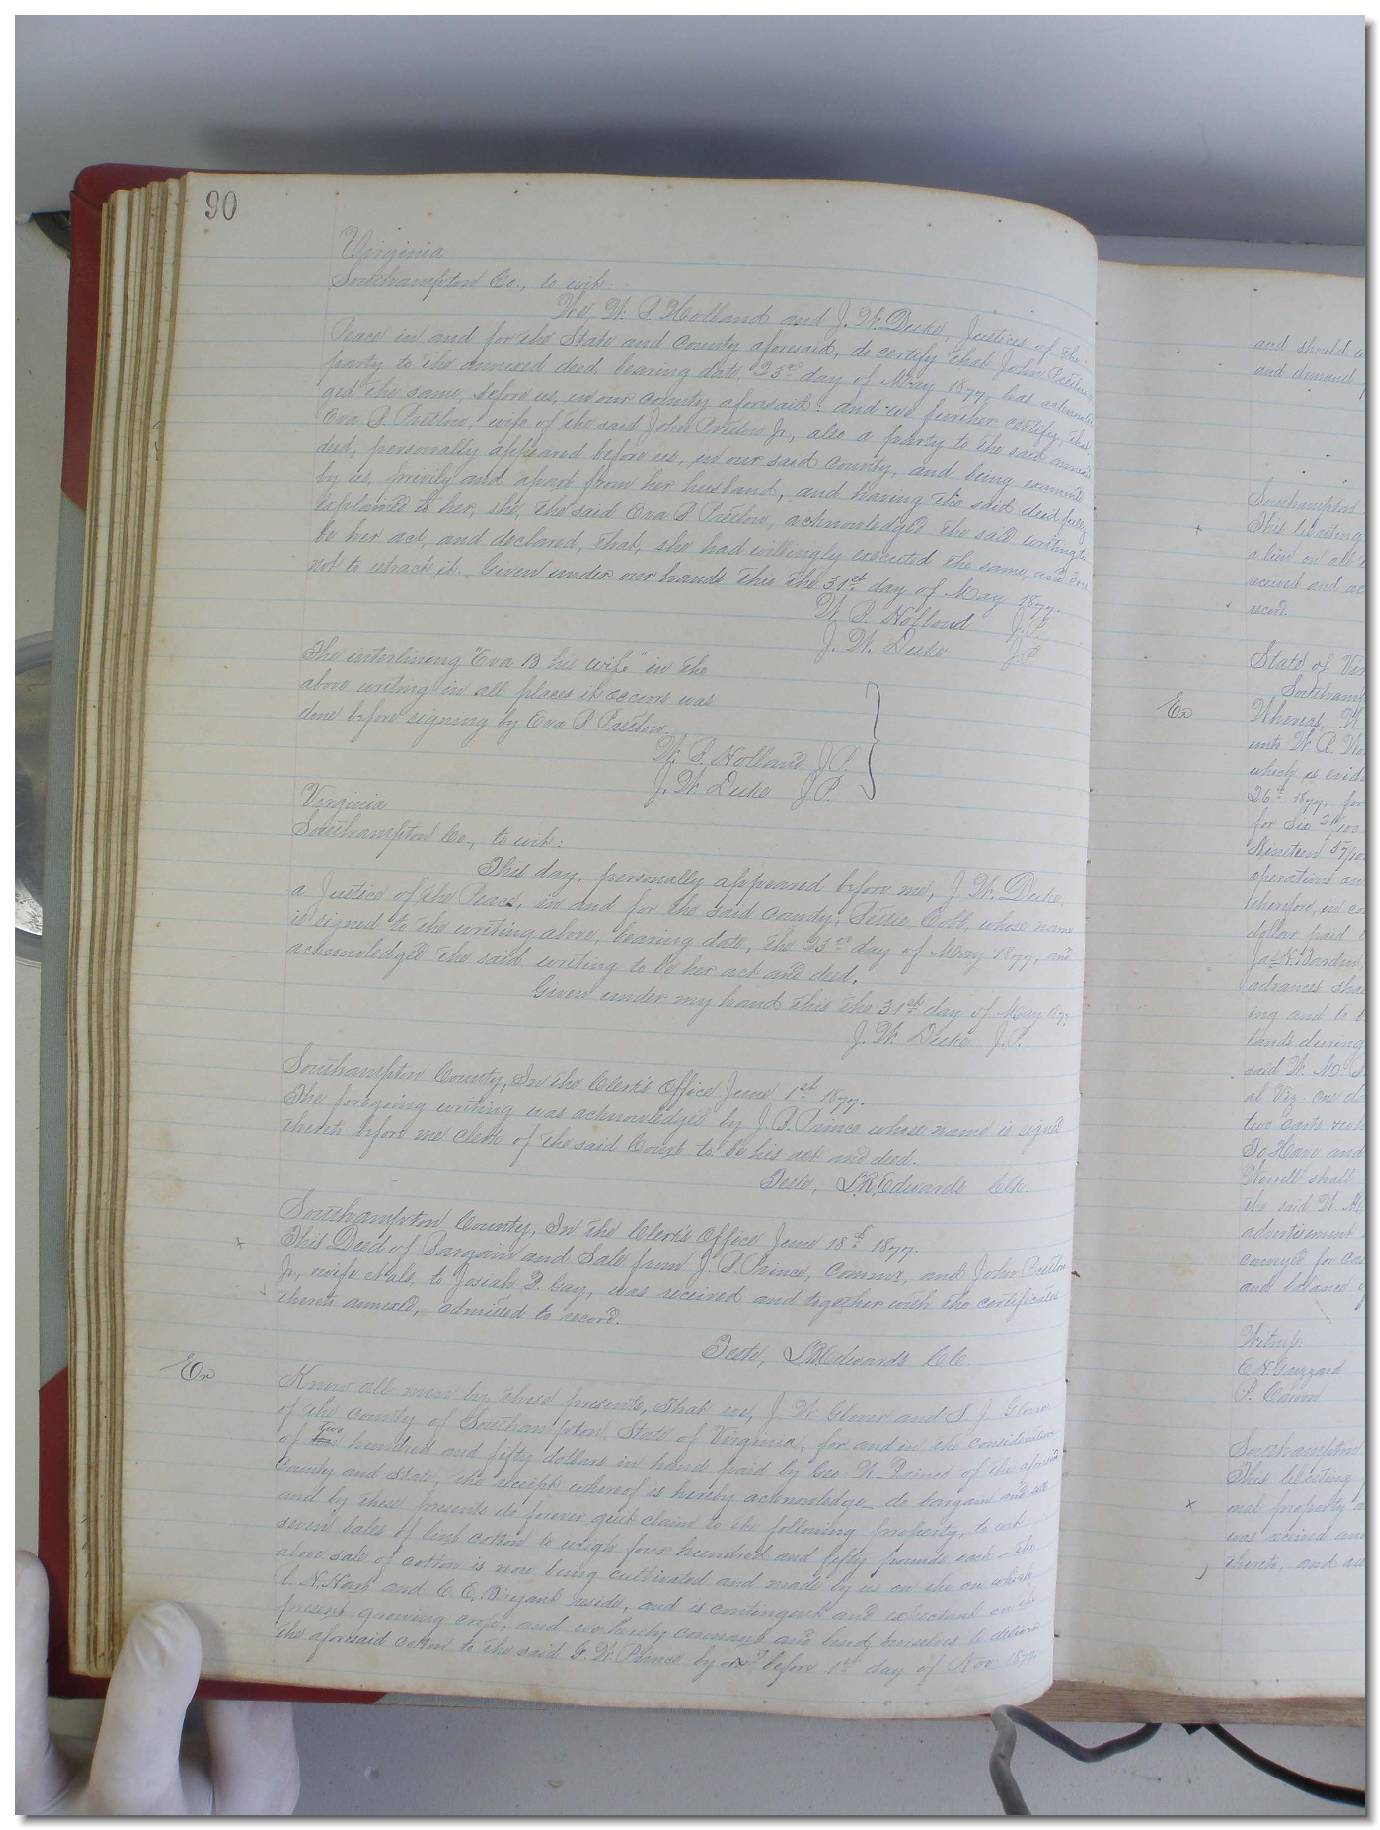 90
Virginia
Southampton Co., to wit:
We, W. P. Holland and J. W. Duke, Justices of the
Peace in and for the State and County aforesaid, do certify that John Pretlow
party to the annexed deed bearing date, 23rd day of May 1877, has acknowled
ged the same, before us, in our County aforesaid: and we further certify, that
Eva B Pretlow, wife of the said John Pretlow Jr, also a party to the said annexed
deed, personally appeared before us, in our said County, and being examined
by us, privily and apart from her husband, and having the said deed fully
explained to her, she, the said Eva B Pretlow, acknowledged the said writing to
be her act, and declared, that, she had willingly executed the same, and does
not to retract it. Given under our hands this the 31st day of May 1877.
W. P. Holland J.P.
J. W. Duke J.P.
The interlining "Eva B his wife" in the
above writing in all places it occurs was
done before signing by Eva B Pretlow.
W. P. Holland J.P.
J. W. Duke J.P.
Virginia
Southampton Co., to wit:
This day, personally appeared before me, J. W. Duke,
a Justice of the Peace, in and for the said County, Cobb, whose name
is signed to the writing above, bearing date, the 23rd day of May 1877, and
acknowledged the said writing to be her act and deed.
Given under my hand this the 31st day of May 1877.
J. W. Duke J.P.
Southampton County, In the Clerk's Office June 1st 1877.
The foregoing writing was acknowledged by J. B. Prince whose name is signed
thereto before me Clerk of the said Court to be his act and deed.
Teste, L.R. Edwards Clk.
Southampton County, In the Clerk's Office June 18th 1877.
x This Deed of Bargain and Sale from J. B. Prince, Commr, and John Pretlow
Jr, wife et als, to Josiah, was received and together with the certificates
thereto annexed, admitted to record.
Teste, L.R. Edwards CC.
Ex Know all men by these presents, That we, J. W. Glover and S. J. Glover
of the County of Southampton, State of Virginia, for and in the consideration
of two hundred and fifty dollars in hand paid by Geo. W. Prince of the aforesaid
County and State, the receipt whereof is hereby acknowledge, do bargain and sell
and by these presents do forever quit claim to the following property, to wit
seven bales of lint cotton to weigh four hundred and fifty pounds each - the
above sale of cotton is now being cultivated and made by us on the on which
and C. E. Bryant reside, and is contingent and expectant on the
present growing crop, and we hereby covenant and bind ourselves to deliver
the aforesaid cotton to the said G. W. Prince by or before 1st day of Nov 1877
and should
and demand
Southampton
x This
a lien on all
received and
record.
State of
Ex Whereas, W.
unto W.
which is
26th 1877, for
for Six 31/100
Nineteen
operations
therefore, in
dollar paid
advances
ing and to
lands during
said W.
two carts
To Have and
shall
the said W.
advertisement
convey for
and balance
Witness:
Southampton
This
x onal property
was received and
thereto, and